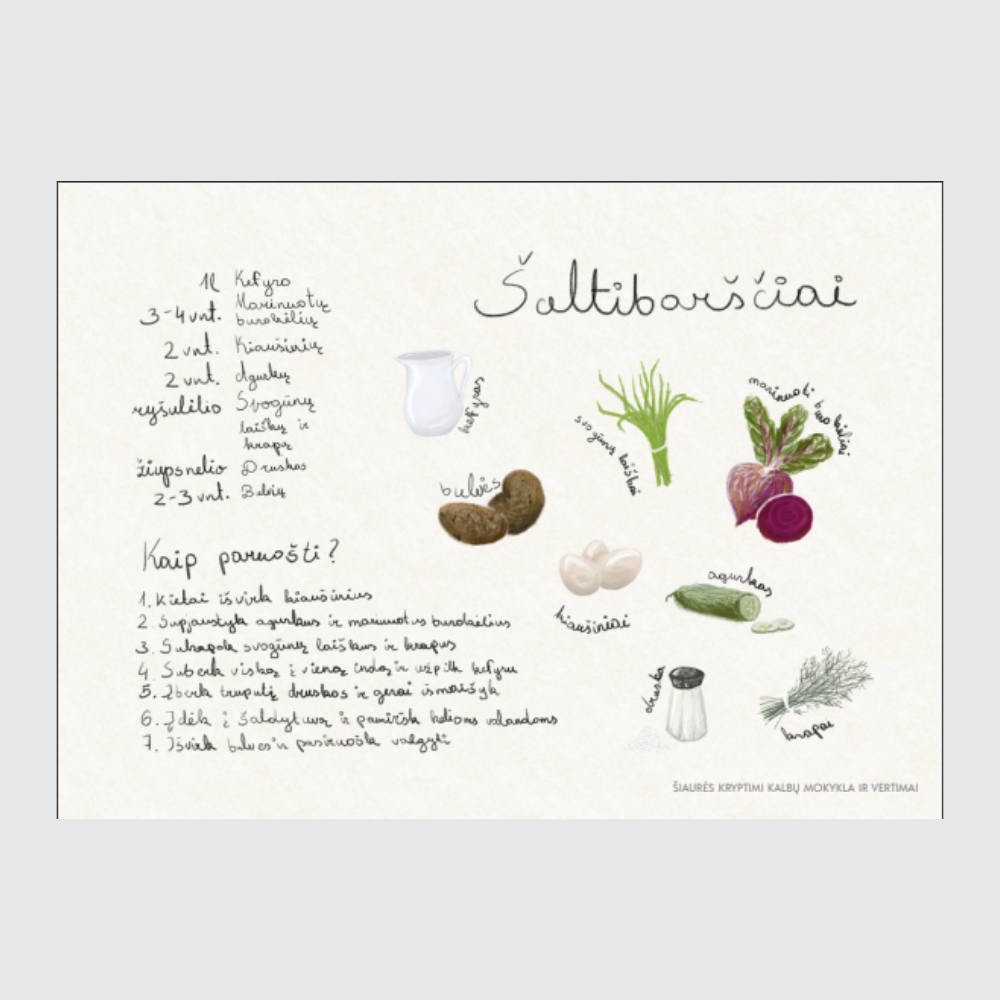 Šaltibarščiai
1l Kefyro
3-4 vnt. Marinuotų
burokėlių
2 vnt. Kiaušinių
2 vnt. Agurkų
ryšulėlio Svogūnų
laiškų ir
krapų
žiupsnelio Druskos
2-3 vnt. Bulvių
kefyras
svogūnų laiškai
marinuoti burokėliai
bulvės
kiaušiniai
agurkas
druska
krapai
Kaip paruošti?
1. Kietai išvirk kiaušinius
2. Supjaustyk agurkus ir marinuotus burokėlius
3. Sukapok svogūnų laiškus ir krapus
4. Suberk viską į vieną indą ir užpilk kefyru
5. Įberk truputį druskos ir gerai išmaišyk
6. Įdėk į šaldytuvą ir pamiršk kelioms valandoms
7. Išvirk bulves ir pasiruošk valgyti
ŠIAURĖS KRYPTIMI KALBŲ MOKYKLA IR VERTIMAI